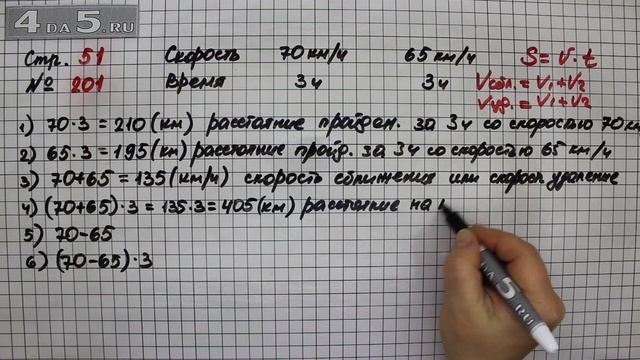 4 DA 5.RU
Стр. 51 Скорость 70 км/ч 65 км/ч S = V · t
№ 201 Время 3 ч 3 ч Vсбл. = V1 + V2
Vуд. = V1 + V2
1) 70 · 3 = 210 (км) расстояние пройден. за 3 ч со скоростью 70 км
2) 65 · 3 = 195 (км) расстояние пройд. за 3 ч со скоростью 65 км/ч
3) 70 + 65 = 135 (км/ч) скорость сближения или скорость удаление
4) (70 + 65) · 3 = 135 · 3 = 405 (км) расстояние на
5) 70 - 65
6) (70 - 65) · 3
DA 5.RU